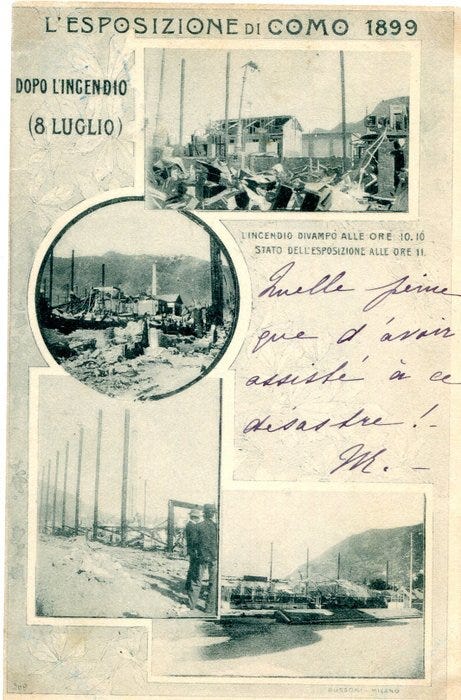 L'ESPOSIZIONE DI COMO 1899
DOPO L'INCENDIO
(8 LUGLIO)
L'INCENDIO DIVAMPÒ ALLE ORE 10.10
STATO DELL'ESPOSIZIONE ALLE ORE 11.
Quelle peine
que d'avoir
assisté à ce
désastre! -
M. -
BUSSONI - MILANO